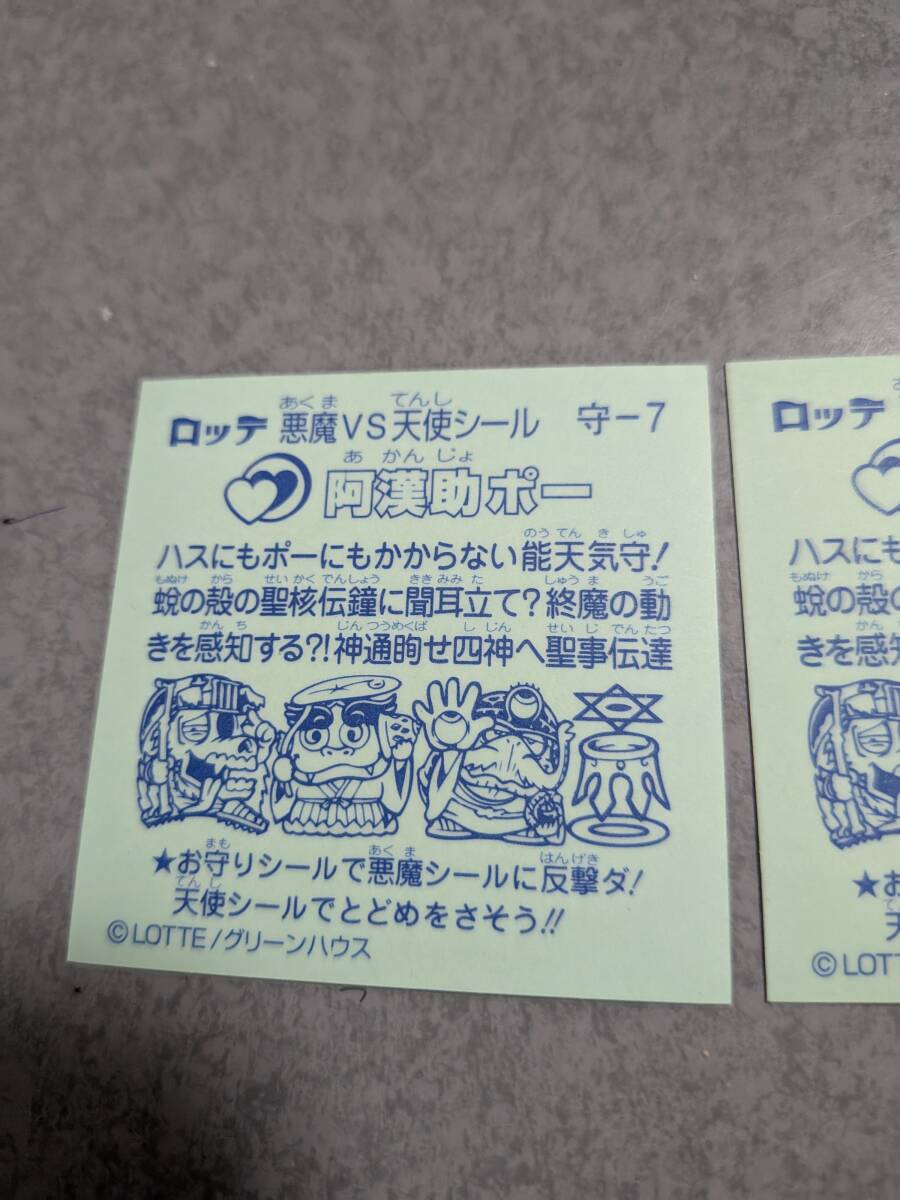 ロッテ 悪魔VS天使シール 守-7
あくま てんし
阿漢助ポー
あ かん じょ
ハスにもポーにもかからない能天気守!
のう てん き しゅ
蛻の殻の聖核伝鐘に聞耳立て?終魔の動
もぬけ から せい かく でんしょう きき みみ た しゅう ま うご
きを感知する?!神通眴せ四神へ聖事伝達
かん ち じん つうめくば し じん せい じ でん たつ
★お守りシールで悪魔シールに反撃ダ!
まも あく ま はんげき
天使シールでとどめをさそう!!
てん し
©LOTTE/グリーンハウス
ロッテ
ハスにも
蛻の殻の
もぬけ から
きを感知
かん
★お
©LOTT